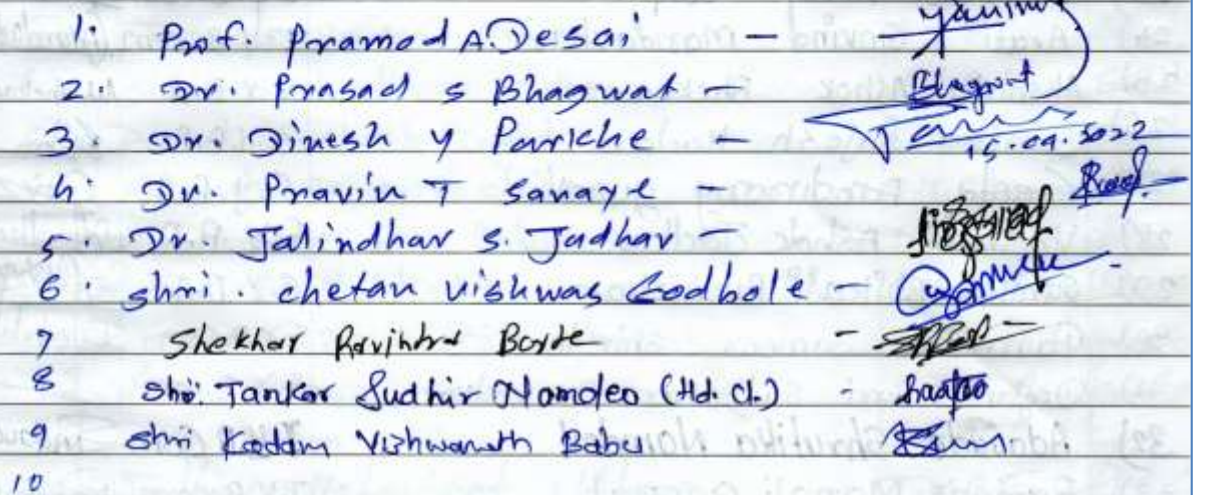 1. Prof. Pramod A. Desai -
2. Dr. Prasad S Bhagwat - Bhagwat
3. Dr. Dinesh Y Pariche -
15.09.2022
4. Dr. Pravin T Sanaye -
5. Dr. Jalindhar S. Jadhav -
6. Shri. Chetan Vishwas Godbole -
7 Shekhar Ravindra Borde -
8 Shri. Tankar Sudhir Namdeo (Hd. Cl.) -
9 Shri Kadam Vishwanath Babu
10